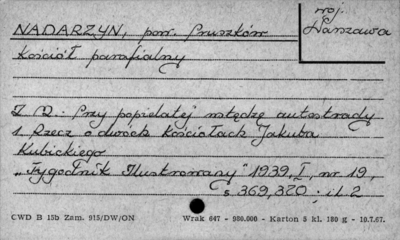 NADARZYN, pow. Pruszków
woj. Warszawa
Kościół parafialny
Z D.: Przy popielatej wstędze autostrady
1 Rzecz o dwóch Kościołach Jakuba
Kubickiego
„Tygodnik Ilustrowany" 1939, I, nr 19,
s 369, 370 ; il 2
CWD B 15b Zam. 915/DW/ON Wrak 647 - 980.000 - Karton 5 kl. 180 g - 10.7.67.